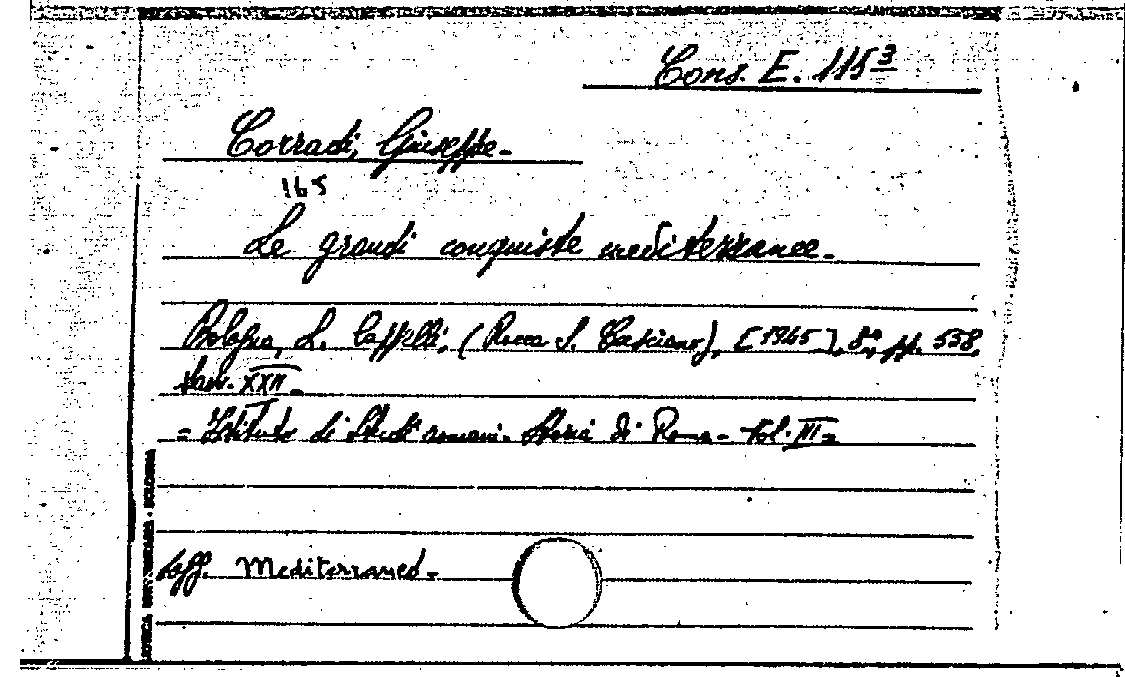 Cons. E. 115³
Corradi, Giuseppe.-
165
Le grandi conquiste mediterranee.-
Bologna, L. Cappelli, (Rocca S. Casciano), [1945], 8°, pp. 558,
tav. XXII.-
= Istituto di Studi romani. Storia di Roma - Vol. III =
Mediterraneo -
BOLOGNA